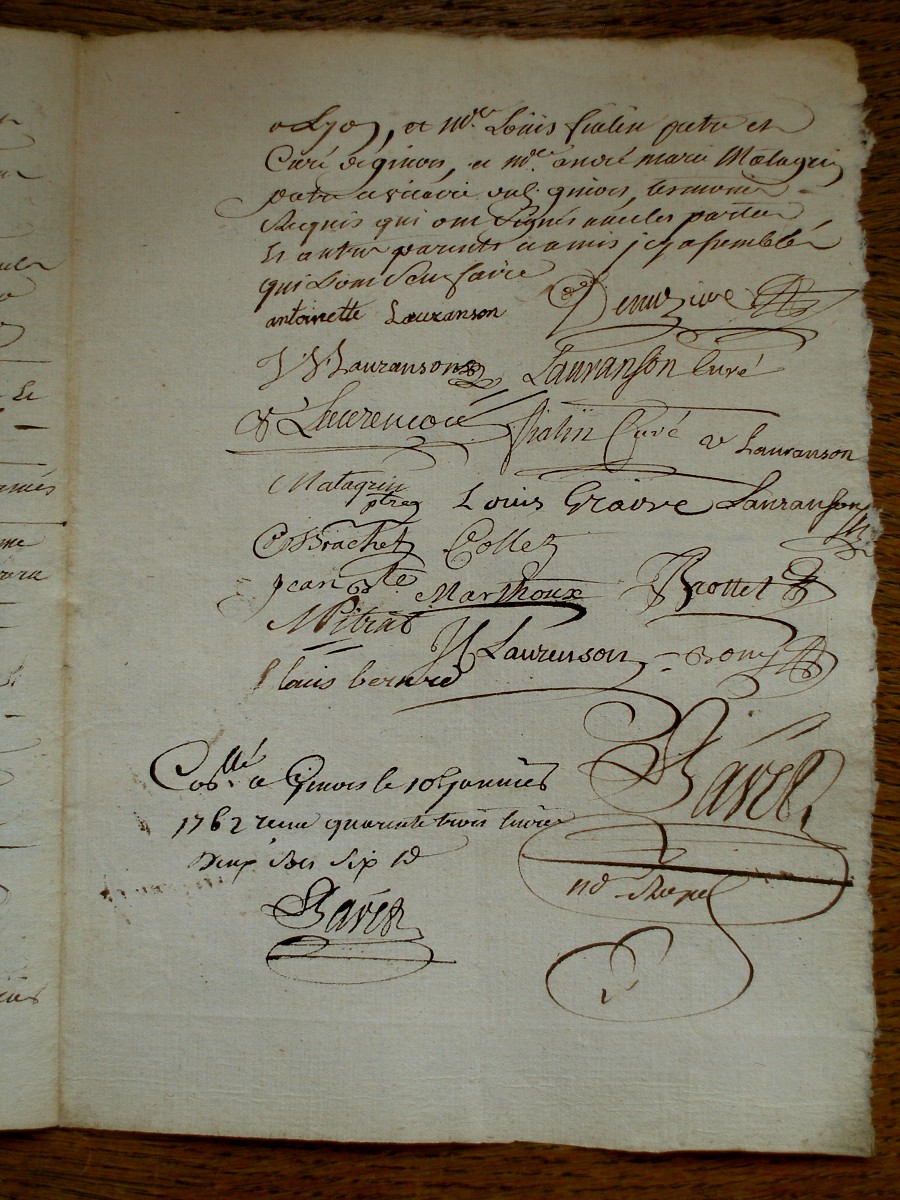 a Lyon, et mre. Louis fialin pretre et
Curé de ginois, et mre. andré marie Matagrin
pretre et vicaire dud. ginois, temoins
Requis qui ont Signés avec les parties
Et autres parents et amis icy assemblés
qui l'ont Sçeu faire
antoinette Lauranson Demeziere
Lauranson Lauranson Curé
fialin Curé Lauranson
Matagrin ptre Louis Graive Lauranson
Brachet Collet
jean Bte. Marthoux Brottet
M Pitrat Laurenson Bony
Clauis bernard
Collé. a Ginois le 10 Janvier
1762 reçu quarante trois livres
Deux Sols Six d
Baret
Baret
nd. Royal